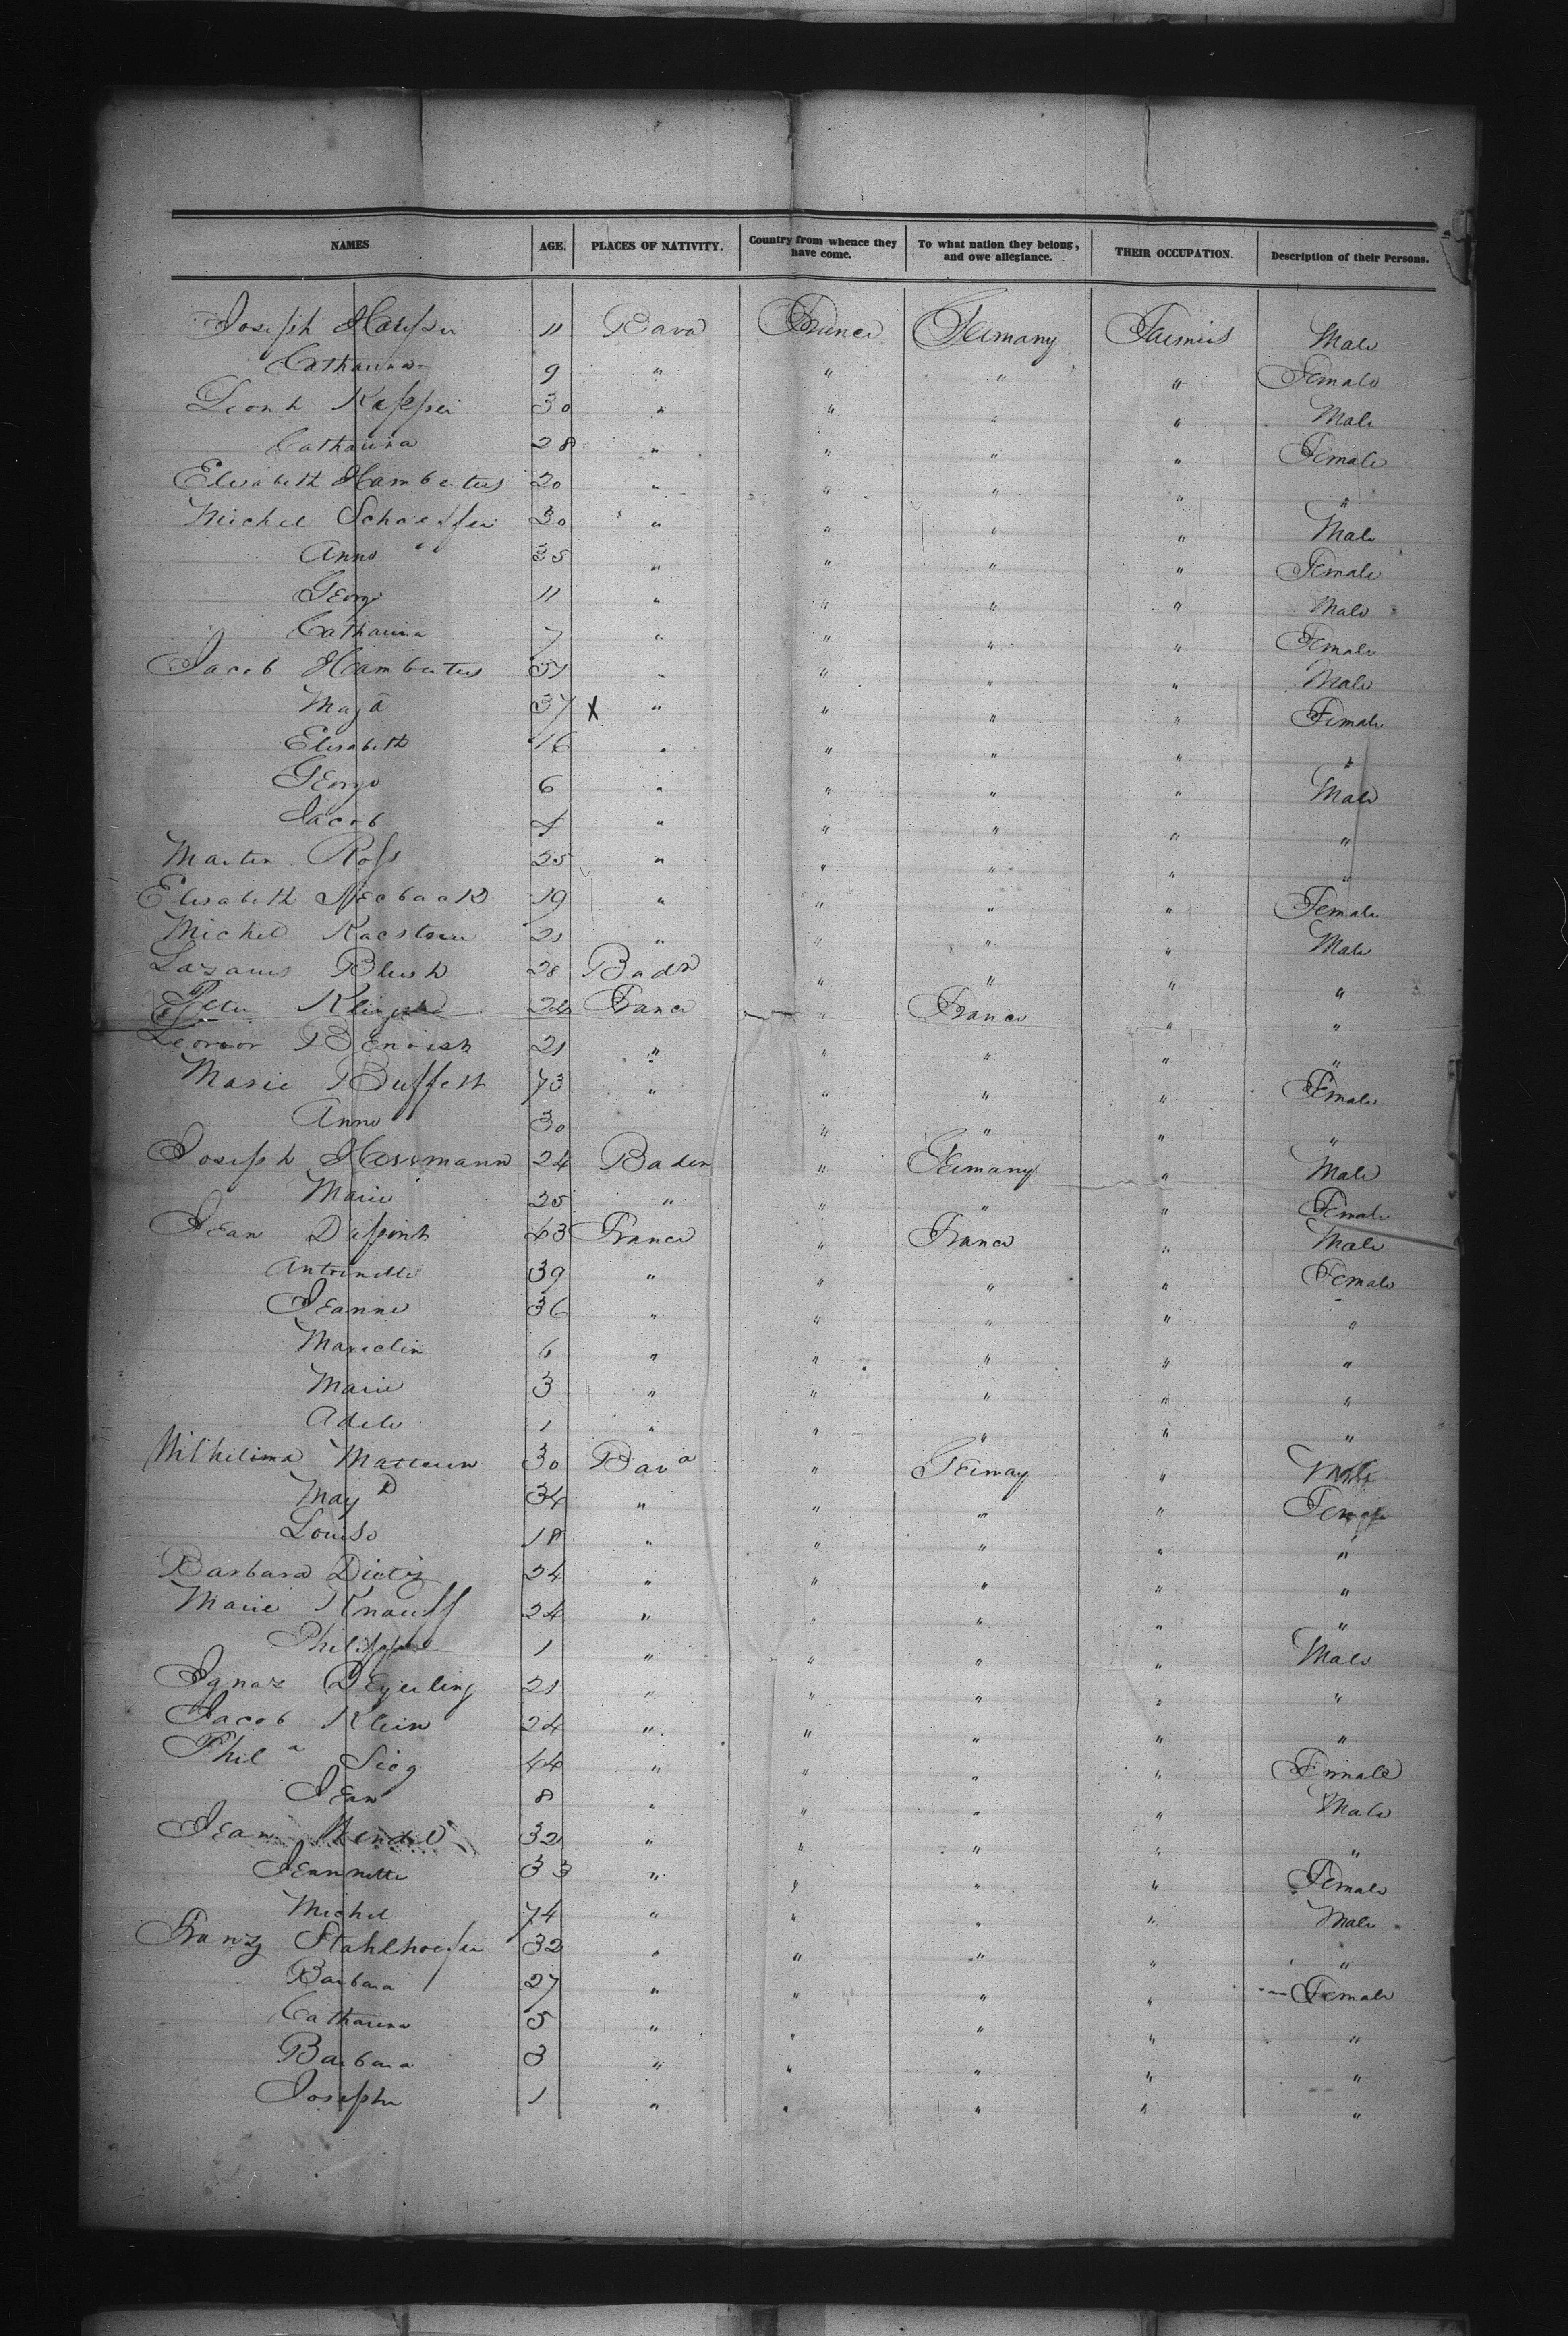 NAMES AGE. PLACES OF NATIVITY. Country from whence they have come. To what nation they belong, and owe allegiance. THEIR OCCUPATION. Description of their Persons.
Joseph 11 Bava France Germany Farmers Male
Catharina 9 " " " " Female
30 " " " " Male
Catharina 28 " " " " Female
Elisabeth Hambertus 20 " " " " "
Michel Schaeffer 30 " " " " Male
Anna " 35 " " " " Female
George 11 " " " " Male
Catharina 7 " " " " Female
Jacob Hambertus 51 " " " " Male
37 X " " " " Female
Elisabeth 16 " " " " "
George 6 " " " " Male
Jacob 4 " " " " "
Martin Ross 25 " " " " "
Elisabeth 19 " " " " Female
Michel 21 " " " " Male
Lazarus 28 Baden " " " "
Peter 24 France " France " "
21 " " " " "
Marie Buffett 73 " " " " Female
Anna 30 " " " "
Joseph Herrmann 24 Baden " Germany " Male
Marie 25 " " " " Female
Jean 43 France " France " Male
Antoinette 39 " " " " Female
Jeanne 36 " " " " "
6 " " " " "
Marie 3 " " " " "
Adele 1 " " " " "
30 Bava " Germay " Male
34 " " " " Female
Louise 18 " " " " "
Barbara 24 " " " " "
Marie Knauff 24 " " " " "
Philippe 1 " " " " Male
Ignaz Deyerling 21 " " " " "
Jacob Klein 24 " " " " "
Phil a Sieg 44 " " " " Female
Jean 8 " " " " Male
Jean 32 " " " " "
Jeannette 33 " " " " Female
Michel 74 " " " " Male
Franz 32 " " " " "
Barbara 27 " " " " Female
Catharina 5 " " " " "
Barbara 3 " " " " "
Josepha 1 " " " " "